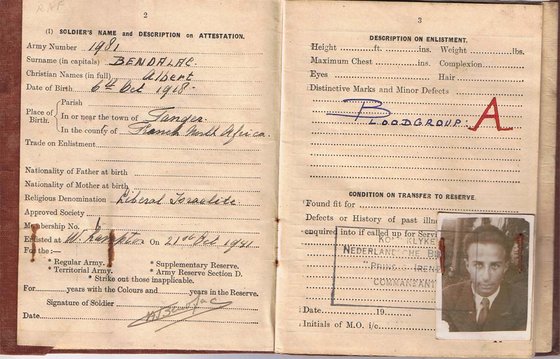 2
(I) SOLDIER'S NAME and DESCRIPTION on ATTESTATION.
Army Number 1981
Surname (in capitals) BENDALAC.
Christian Names (in full) Albert
Date of Birth 6th Oct 1918.
Place of Birth.
Parish
In or near the town of Tanger
In the county of French North Africa.
Trade on Enlistment
Nationality of Father at birth
Nationality of Mother at birth
Religious Denomination Liberal Israelite
Approved Society
Membership No.
Enlisted at On 21st Oct 1941
For the :—
* Regular Army. * Supplementary Reserve.
* Territorial Army. * Army Reserve Section D.
* Strike out those inapplicable.
For years with the Colours and years in the Reserve.
Signature of Soldier
Date
3
DESCRIPTION ON ENLISTMENT.
Height ft. ins. Weight lbs.
Maximum Chest ins. Complexion
Eyes Hair
Distinctive Marks and Minor Defects
BLOODGROUP: A
CONDITION ON TRANSFER TO RESERVE.
Found fit for
Defects or History of past illn
enquired into if called up for Serv
KONINKLYKE
NEDERLANDSE BRI
PRINS IRENE
COMMANDANT
Date 19
Initials of M.O. i/c